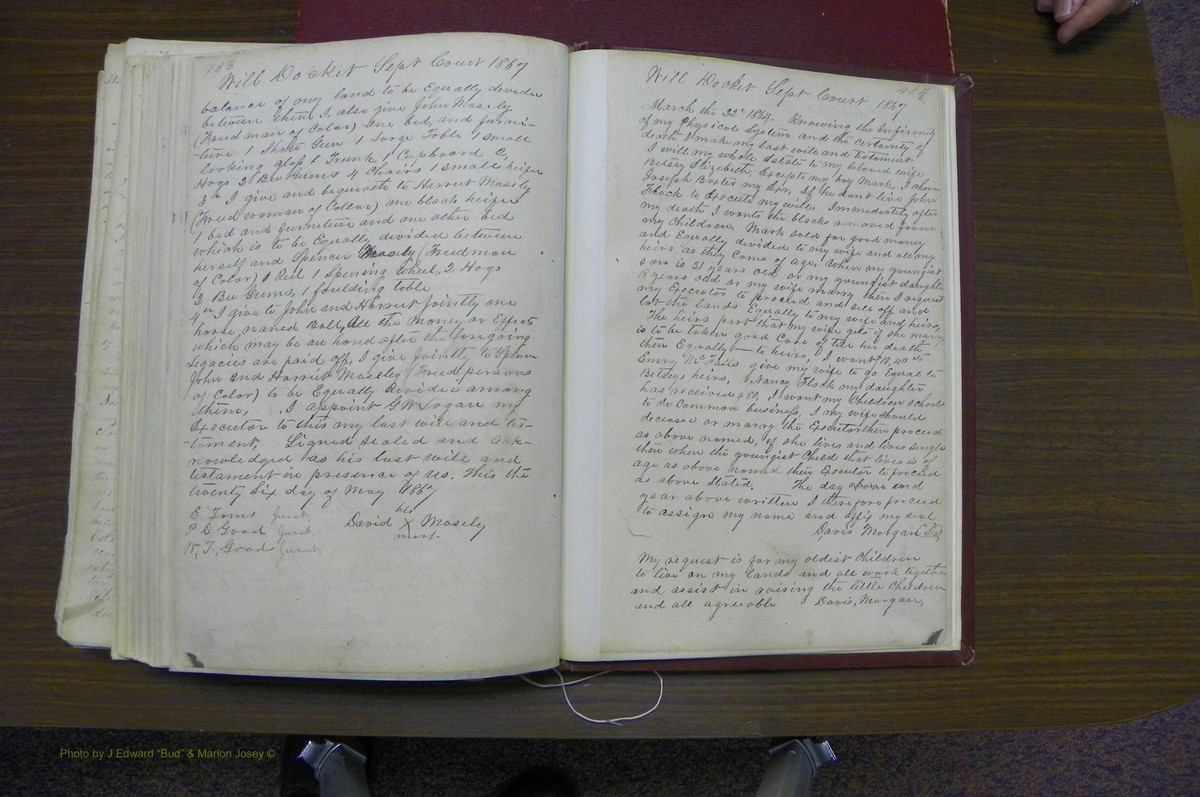 183
Will Docket Sept Court 1867
balance of my land to be Equally divided
between them I also give John Mosely
(Freed man of Color) one bed, and furni-
ture 1 Shot Gun 1 Large Table 1 small
looking glass 1 Trunk 1 Cupboard
Hogs 2 Bee Gums 4 Chairs 1 small heifer
3rd I give and bequeath to Harriet Mosely
(Freed woman of Collor) one black heifer
1 bed and furniture and one other bed
which is to be Equally divided between
herself and Spencer Mosely (Freed man
of Color) 1 Reel 1 Spening wheel, 2 Hogs
2 Bee Gums, 1 foulding table
4th I give to John and Harriet jointly one
horse, named Ball, All the Money or Effects
which may be on hand after the foregoing
legacies are paid off, I give jointly to Spencer
John and Harriet Moseley (Freed persons
of Color) to be Equally divided among
them, I appoint G W Logan my
Executor to this my last will and tes-
-tment, Signed Sealed and ack-
nowledged as his last will and
testament in presence of us. This the
twenty Six day of May 1867
E. Toms Jurat
P D. Good Jurat
W. T, Good Jurat,
his
David X Mosely
mark
Will Docket Sept Court 1867
March the 22d 1864. Knowing the Infirmity
of my Physical System and the certainty of
death I make my last will and testament
I will my whole Estate to my beloved wife
Betsey Elizebeth, Except my boy Mark, I chose
Joseph Baxter my Exr, If he dont live John
Flack to Execute my will. Immediately after
my death I wants the blacks removed from
my Children, Mark sold for good money
and Equally divided to my wife and all my
heirs as they come of age, When my youngist
son is 21 years old or my youngist daughter
18 years old or my wife marry then I request
my Executor to proceed and sell off and
lot the lands Equally to my wife and heirs,
The heirs part that my wife gits if she marry
is to be taken good care of till her death
then Equally to heirs, I want
Emmy McFalls give my wife to go Equal to
Betsey, heirs, Nancy Flack my daughter
has received $80, I want my Children schooled
to do Common business, I my wife should
decease or marry the Executor then proceed
as above named, if she lives and lives single
then when the youngist Child that lives is of
age as above named then Executor to proceed
as above stated. The day above and
year above written I therefore proceed
to assign my name and affix my seal
Davis Morgan (Seal)
My request is for my oldest Children
to live on my lands and all work together
and assist in raising the little Children
and all agreable Davis, Morgan,
Photo by J Edward "Bud" & Marion Josey ©